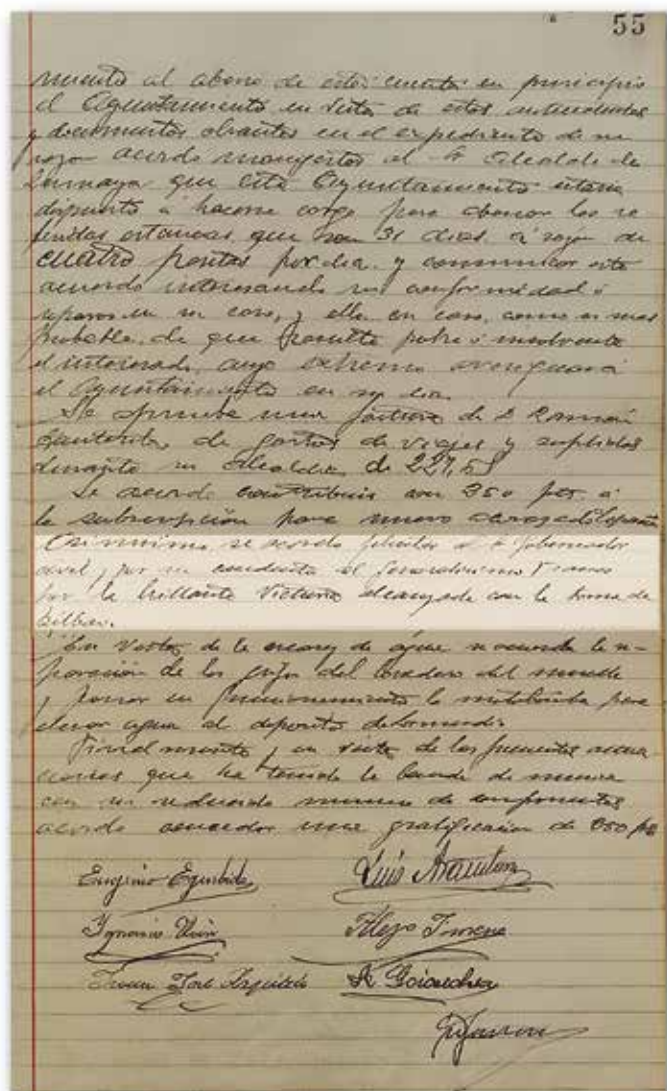 55
miento al abono de estas cuentas en principio
el Ayuntamiento en vista de estos antecedentes
y documentos obrantes en el expediente de su
razon acordo manifestar al Sr Alcalde de
Zumaya que este Ayuntamiento estaria
dispuesto a hacerse cargo para abonar las re
feridas estancias que son 31 dias a razon de
cuatro pesetas por dia y comunicar este
acuerdo interesando su conformidad o
reparos en su caso, y ello en caso, como es mas
probable, de que resulte pobre o insolvente
el interesado, cuyo extremo averiguará
el Ayuntamiento en su dia.
Se aprueba una factura de D Román
de gastos de viajes y suplidos
durante su Alcaldia de 227,55
Se acordo contribuir con 350 pts. a
la subscripción para nuevo acorazado España
Asi mismo se acordo felicitar al Sr Gobernador
civil y por su conducto al Generalisimo Franco
por la brillante victoria alcanzada con la toma de
Bilbao.
En vista de la escasez de agua se acuerda la re-
paración de los grifos del lavadero del muelle
y poner en funcionamiento la motobomba para
elevar agua al deposito de
Finalmente, en vista de las frecuentes actua
ciones que ha tenido la banda de musica
con su reducido numero de componentes
acordo conceder una gratificación de 350 pts
Eugenio Egurbide Luis
Ignacio
Juan José K Goicoechea